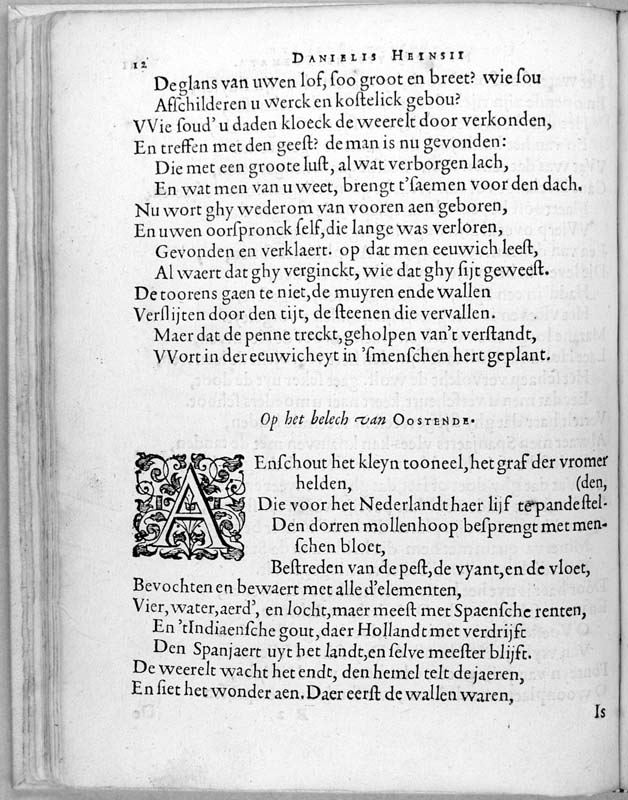 12 DANIELIS HEINSII
De glans van uwen lof, soo groot en breet? wie sou
Afschilderen u werck en kostelick gebou?
VVie soud' u daden kloeck de weerelt door verkonden,
En treffen met den geest? de man is nu gevonden:
Die met een groote lust, al wat verborgen lach,
En wat men van u weet, brengt t'saemen voor den dach.
Nu wort ghy wederom van vooren aen geboren,
En uwen oorspronck self, die lange was verloren,
Gevonden en verklaert. op dat men eeuwich leest,
Al waert dat ghy verginckt, wie dat ghy sijt geweest.
De toorens gaen te niet, de muyren ende wallen
Verslijten door den tijt, de steenen die vervallen.
Maer dat de penne treckt, geholpen van't verstandt,
VVort in der eeuwicheyt in 'smenschen hert geplant.
Op het belech van OOSTENDE.
AEnschout het kleyn tooneel, het graf der vromer
helden, (den,
Die voor het Nederlandt haer lijf te pande stel-
Den dorren mollenhoop besprengt met men-
schen bloet,
Bestreden van de pest, de vyant, en de vloet,
Bevochten en bewaert met alle d'elementen,
Vier, water, aerd', en locht, maer meest met Spaensche renten,
En 'tIndiaensche gout, daer Hollandt met verdrijft
Den Spanjaert uyt het landt, en selve meester blijft.
De weerelt wacht het endt, den hemel telt de jaeren,
En siet het wonder aen. Daer eerst de wallen waren,
Is